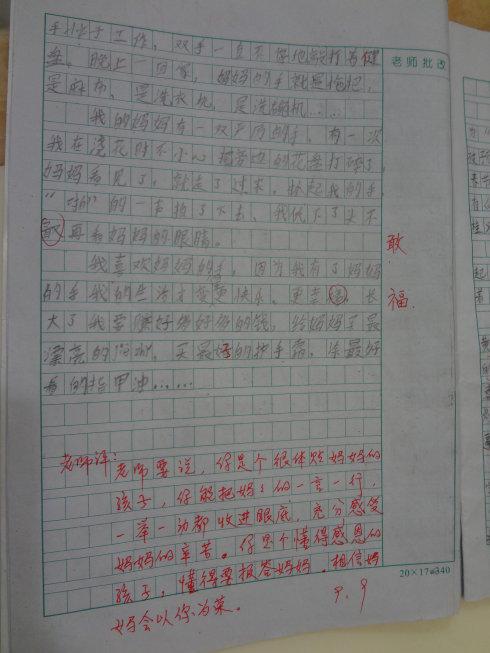 手扑于工作，双手一直不停地敲打着键
盘。晚上一回家，妈妈的手就是拖把，
是麻布，是洗衣机，是洗碗机……
我的妈妈有一双严厉的手。有一次
我在浇花时不小心把旁边的花盆打碎了，
妈妈看见了，就走了过来，抓起我的手，
“啪”的一声拍了下去，我低下了头不
敢再看妈妈的眼睛。
我喜欢妈妈的手，因为我有了妈妈
的手我的生活才变更快乐、更幸福。长
大了我要赚好多好多的钱，给妈妈
漂亮的，买最好的护手霜，涂最好
看的指甲油……
老师批改
敢
福
老师评：
老师要说，你是个很体贴妈妈的
孩子，你能把妈妈的一言一行，
一举一动都收进眼底，充分感受
妈妈的辛苦。你是个懂得感恩的
孩子，懂得要报答妈妈，相信妈
妈会以你为荣。
9.9
20×17=340